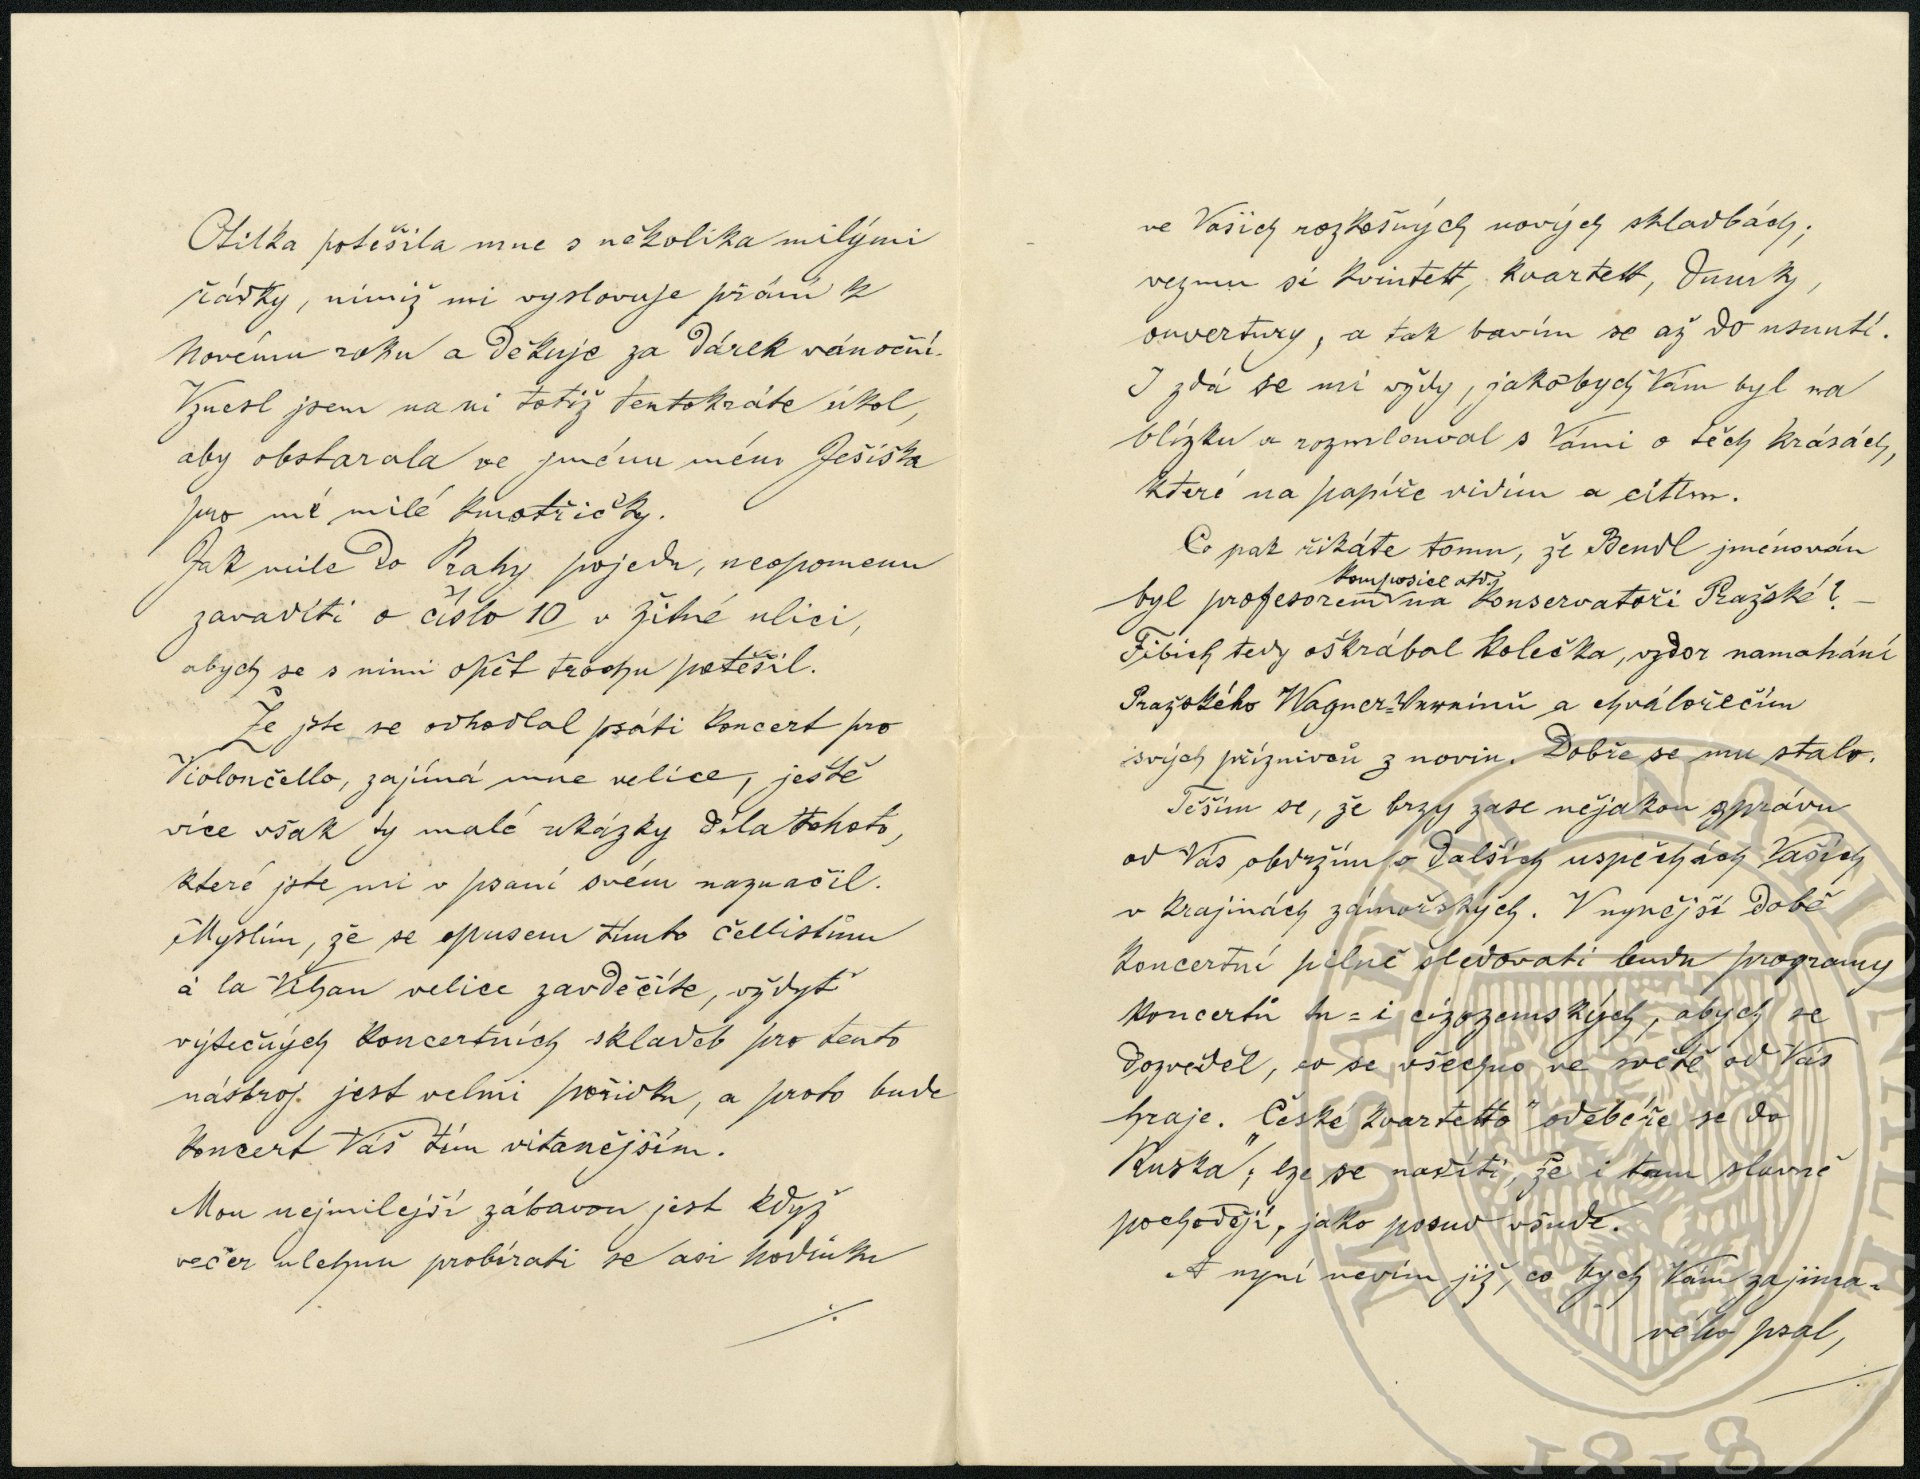 Otilka potěšila mne s několika milými
řádky, nimiž mi vyslovuje přání k
novému roku a děkuje za dárek vánoční.
Vznesl jsem na ni totiž tentokráte úkol,
aby obstarala ve jménu mém Ješiška
pro mé milé kmotřičky.
Jak mile do Prahy pojedu, neopomenu
zavadíti o číslo 10 v Žitné ulici,
abych se s nimi opět trochu potěšil.
Že jste se odhodlal psáti koncert pro
Violončello, zajímá mne velice, ještě
více však ty malé ukázky díla tohoto,
které jste mi v psaní svém naznačil.
Myslím, že se opusem tímto čellistům
à la Wihan velice zavděčíte, vždyť
výtečných koncertních skladeb pro tento
nástroj jest velmi pořídku, a proto bude
koncert Váš tím vítanějším.
Mou nejmilejší zábavou jest když
večer ulehnu probírati se asi hodinku
./.
ve Vašich rozkošných nových skladbách;
vezmu si kvintett, kvartett, Dumky,
ouvertury, a tak bavím se až do usnutí.
I zdá se mi vždy, jakobych Vám byl na
blízku a rozmlouval s Vámi o těch krásách,
které na papíře vidím a cítím.
Co pak říkáte tomu, že Bendl jmenován
komposice atd.
byl profesorem na konservatoři Pražské? –
Fibich tedy oškrábal kolečka, vzdor namahání
Pražského Wagner- a chválořečím
svých příznivců z novin. Dobře se mu stalo.
Těším se, že brzy zase nějakou zprávu
od Vás obdržím o dalších uspěchách Vašich
v krajinách zámořských. V nynější době
koncertní pilně sledovati budu programy
koncertů tu- i cizozemských, abych se
dozvěděl, co se všechno ve světě od Vás
hraje. „České kvartetto“ odebéře se do
Ruska; lze se nadíti, že i tam slavně
pochodějí, jako posud všude.
A nyní nevím již, co bych Vám zajíma-
vého psal,
MUSAEUM NATIONALE PR
1818